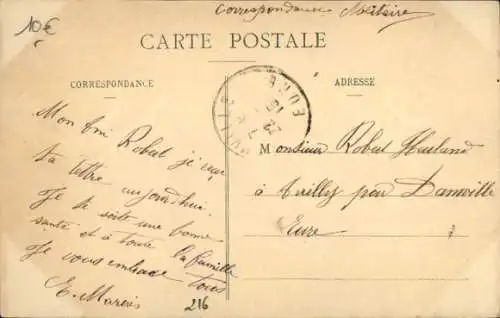 10€
Correspondance Militaire
CARTE POSTALE
CORRESPONDANCE
ADRESSE
EURE
22
Mon Ami Robert je
ta lettre aujourdhui.
Je te soite une bonne
santé et à toute la famille
Je vous embrase tous
E. Marais
216
Monsieur Robert
à par Damville
Eure